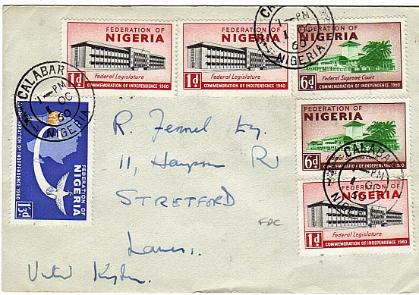 FEDERATION OF
NIGERIA
Federal Legislature
1d COMMEMORATION OF INDEPENDENCE 1960
FEDERATION OF
NIGERIA
Federal Legislature
1d COMMEMORATION OF INDEPENDENCE 1960
FEDERATION OF
NIGERIA
Federal Supreme Court
6d COMMEMORATION OF INDEPENDENCE 1960
CALABAR
1-PM
1 OC
60
NIGERIA
CALABAR
1-PM
OC
60
NIGERIA
FEDERATION OF
NIGERIA
COMMEMORATION OF INDEPENDENCE 1960
FEDERATION OF
NIGERIA
Federal Supreme Court
6d COMMEMORATION OF INDEPENDENCE 1960
CALABAR
PM
OC
FEDERATION OF
NIGERIA
Federal Legislature
1d COMMEMORATION OF INDEPENDENCE 1960
R.
11,
STRETFORD
FDC
Lancs.